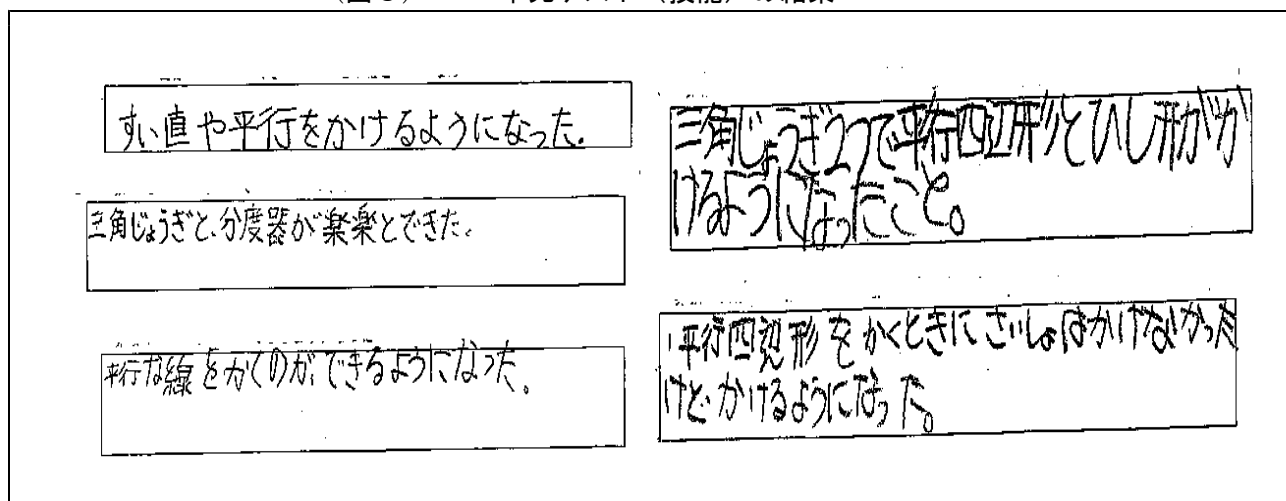 すい直や平行をかけるようになった.
三角じょうぎと、分度器が楽楽とできた。
平行な線をかくのが、できるようになった。
三角じょうぎ2つで平行四辺形とひし形がか
けるようになったこと。
平行四辺形をかくときにさいしょはかけなかった
けど、かけるようになった。